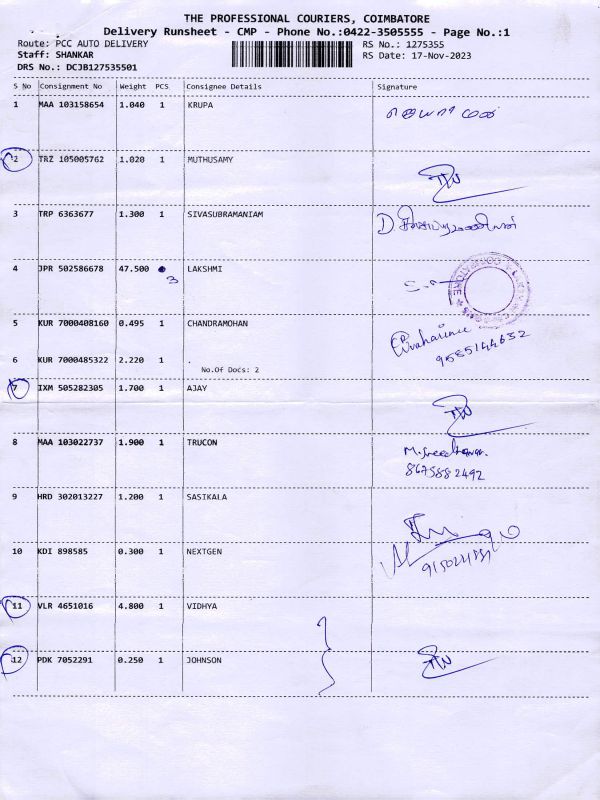 THE PROFESSIONAL COURIERS, COIMBATORE
Delivery Runsheet - CMP - Phone No.:0422-3505555 - Page No.:1
Route: PCC AUTO DELIVERY RS No.: 1275355
Staff: SHANKAR RS Date: 17-Nov-2023
DRS No.: DCJB127535501
S No Consignment No Weight PCS Consignee Details Signature
1 MAA 103158654 1.040 1 KRUPA
2 TRZ 105005762 1.020 1 MUTHUSAMY
3 TRP 6363677 1.300 1 SIVASUBRAMANIAM
4 JPR 502586678 47.500 3 LAKSHMI
5 KUR 7000408160 0.495 1 CHANDRAMOHAN
9585144632
6 KUR 7000485322 2.220 1 .
No.Of Docs: 2
7 IXM 505282305 1.700 1 AJAY
8 MAA 103022737 1.900 1 TRUCON
8675882492
9 HRD 302013227 1.200 1 SASIKALA
10 KDI 898585 0.300 1 NEXTGEN
11 VLR 4651016 4.800 1 VIDHYA
12 PDK 7052291 0.250 1 JOHNSON